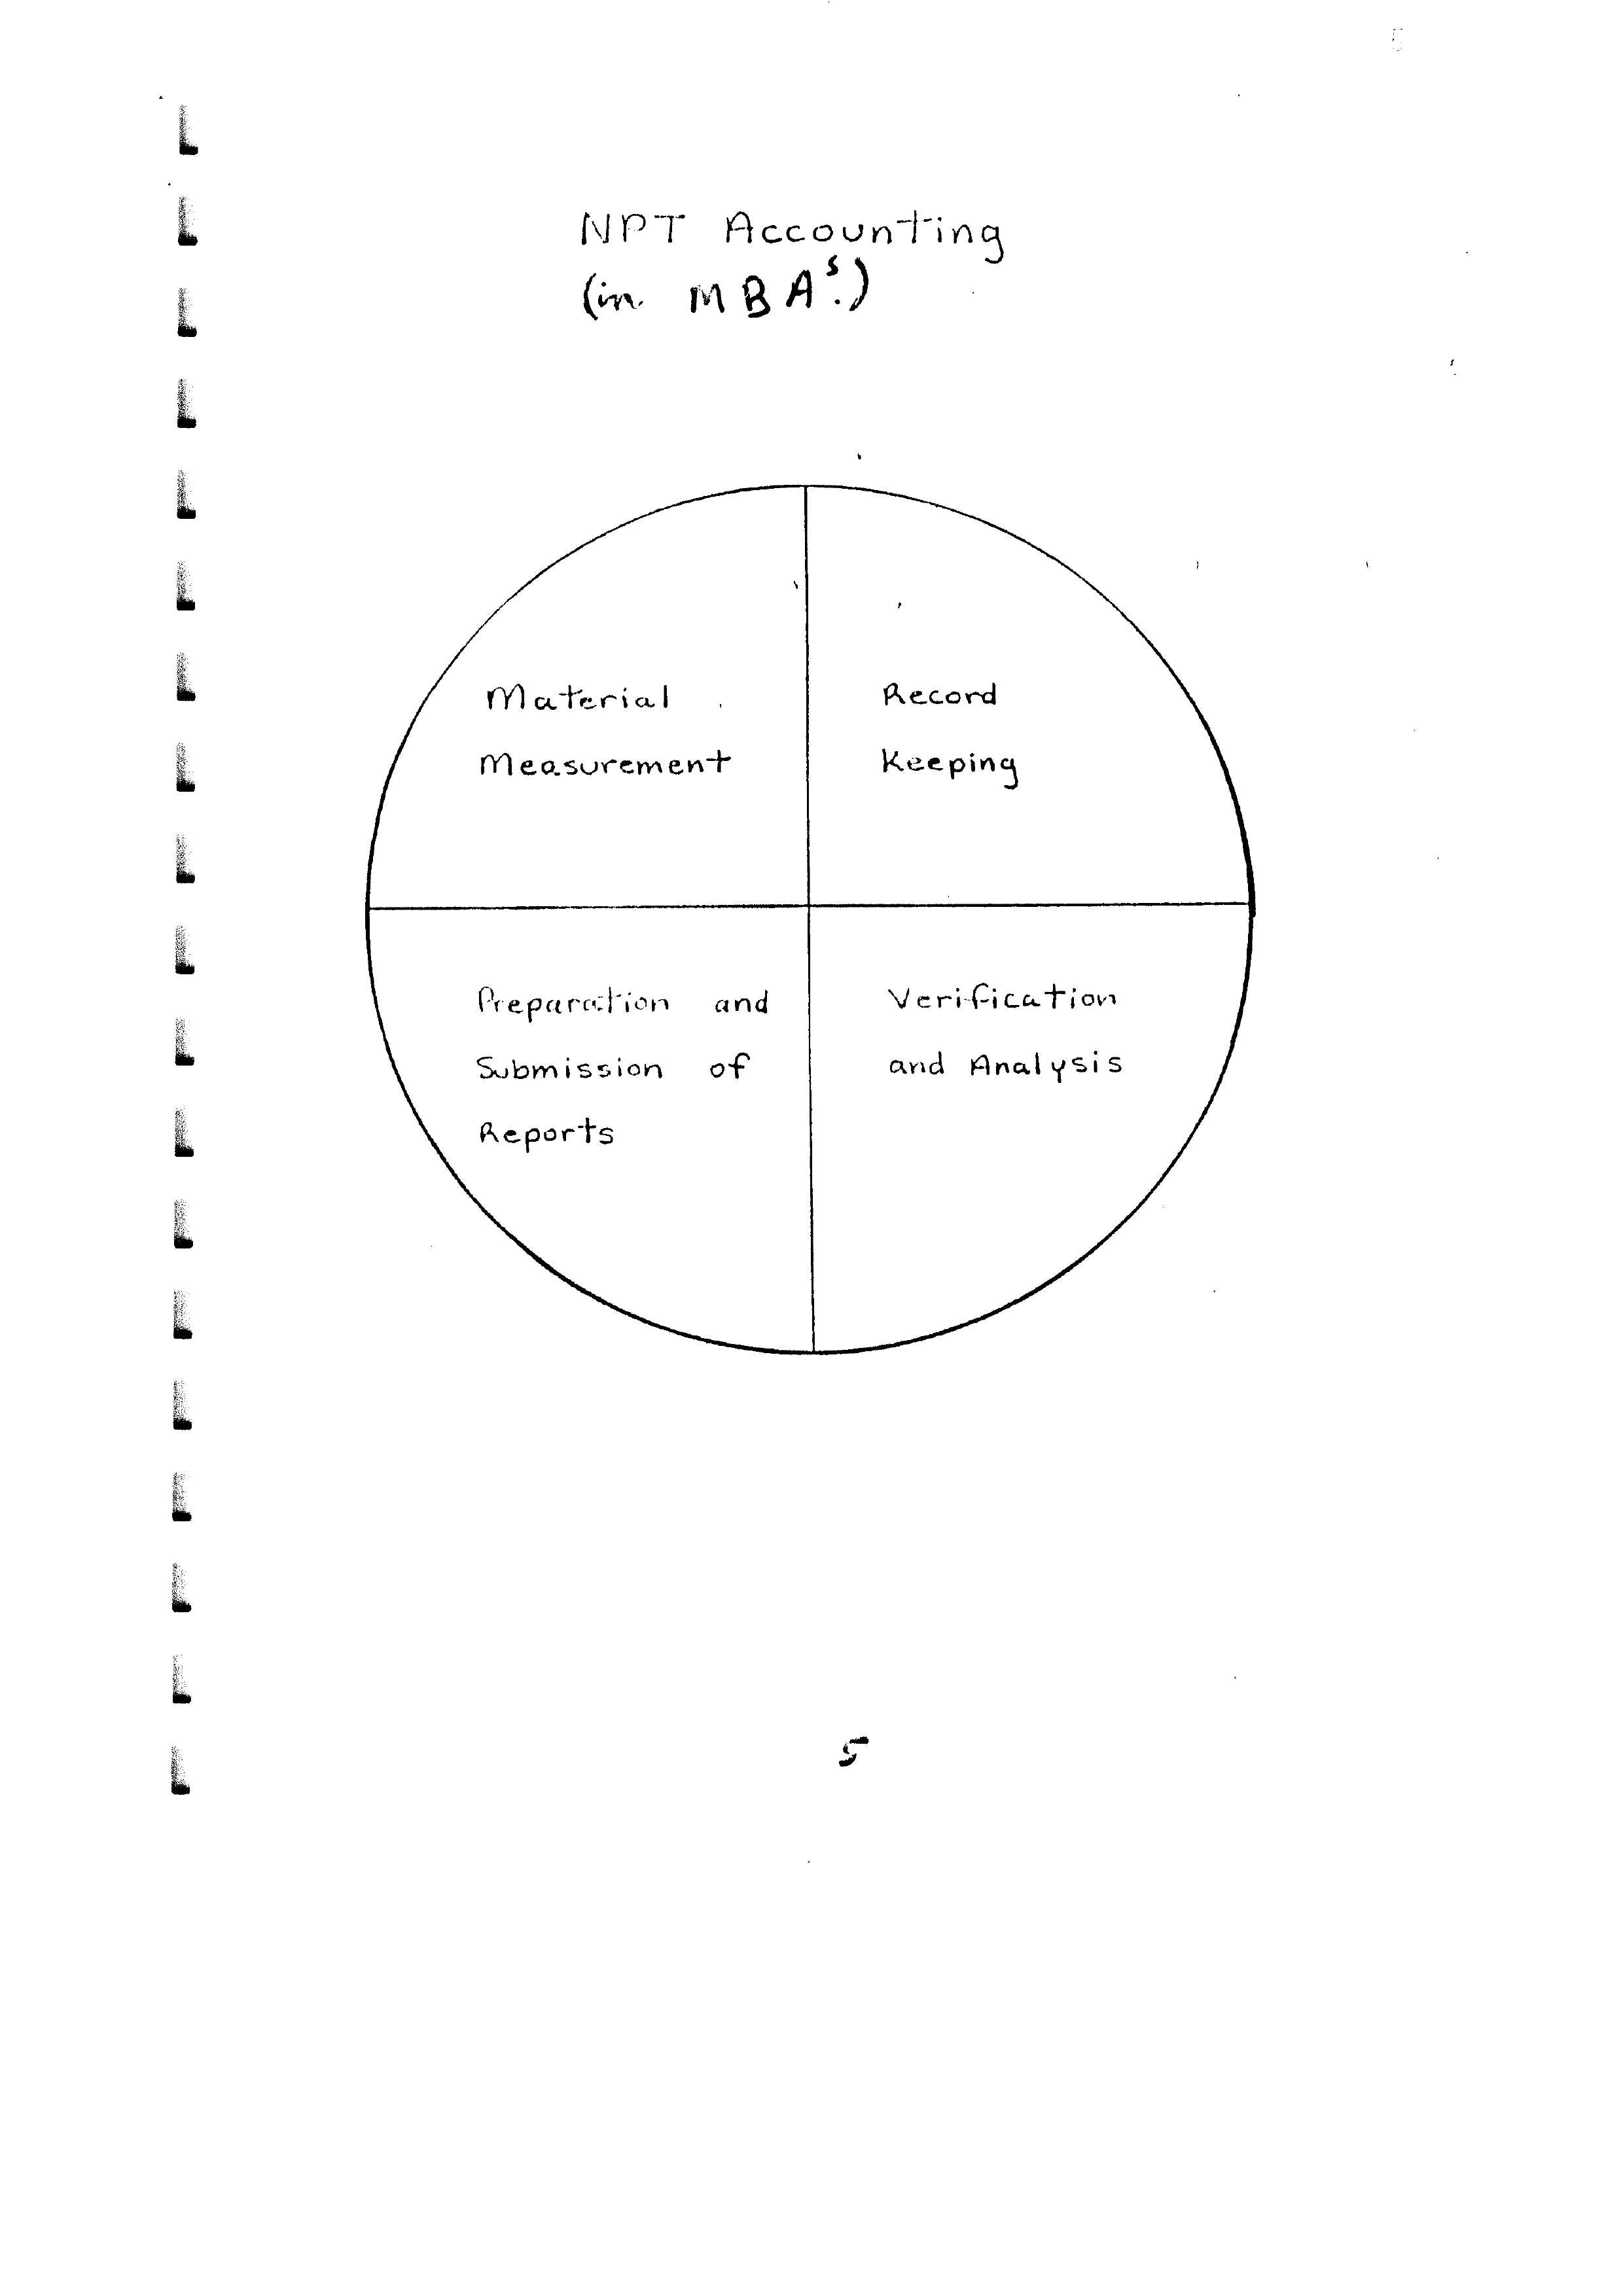 NPT Accounting
(in MBAs.)
Material
Measurement
Record
Keeping
Preparation and
Submission of
Reports
Verification
and Analysis
5